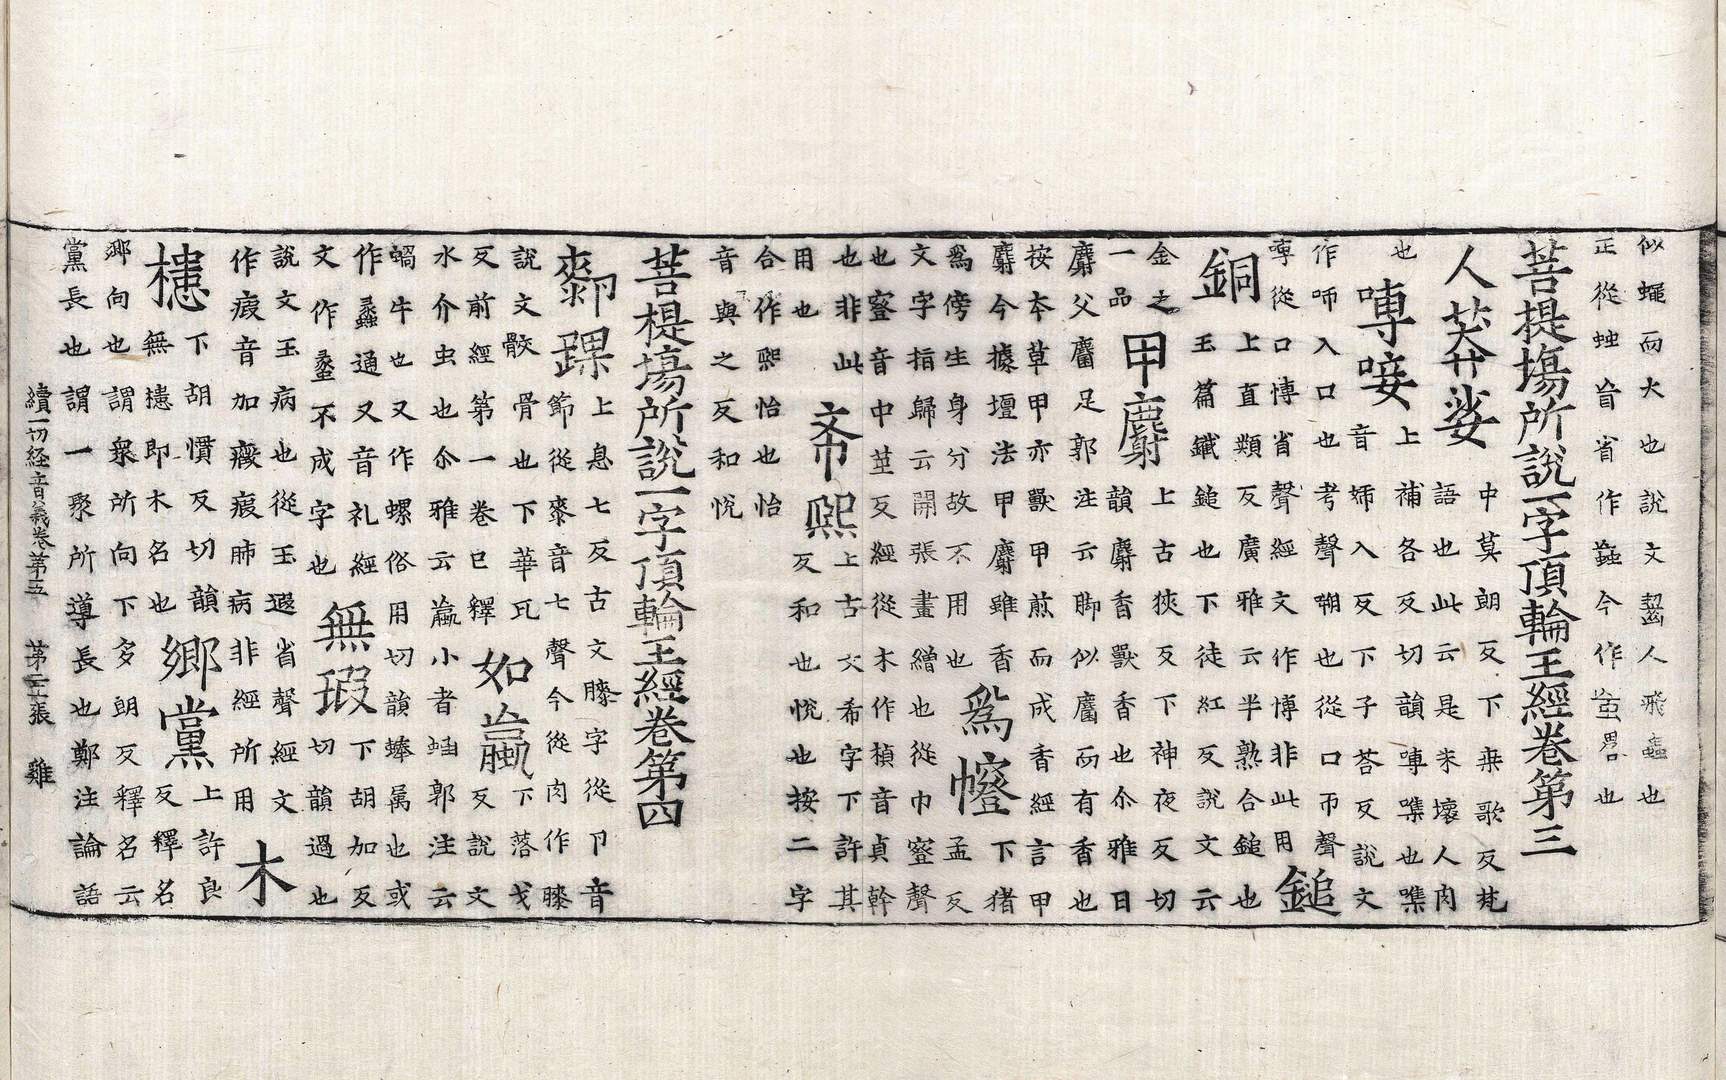 似蠅而大也說文齧人飛蟲也
正從䖵音省作蝱今作䖟畧也
菩提塲所說一字頂輪王經卷第三
人莽娑
中莫朗反下乗歌反梵
語也此云是未壞人肉
也
㗘唼
上補各反切韻㗘㗱也㗱
音姉入反下子荅反說文
作咂入口也考聲嗍也從口帀聲
㗘從口博省聲經文作博非此用
鎚銅
上直類反廣雅云半熟合鎚也
玉篇鐵鎚也下徒紅反說文云
金之
一品
甲麝
上古狹反下神夜反切
韻麝香獸香也尒雅曰
麝父麕足郭注云脚似麕而有香也
按本草甲亦獸甲煎而成香經言甲
麝今據壇法甲麝雖香
爲傍生身分故不用也
爲㡧
下猪
孟反
文字指歸云開張畫繒也從巾㝨聲
也㝨音中莖反經從木作楨音貞幹
也非此
用也
希熙
上古文希字下許其
反和也悅也按二字
合作熙怡也怡
音與之反和悅
菩提塲所說一字頂輪王經卷第四
厀踝
上息七反古文膝字從卪音
節從桼音七聲今從肉作膝
說文骸骨也下華瓦
反前經第一卷已釋
如蠃
下落戈
反說文
水介虫也尒雅云蠃小者蜬郭注云
蝸牛也又作螺俗用切韻蜯属也或
作蠡通又音礼經
文作䗍不成字也
無瑕
下胡加反
切韻過也
說文玉病也從玉遐省聲經文
作瘕音加癥瘕肺病非經所用
木槵
下胡慣反切韻
無槵即木名也
鄉黨
上許良
反釋名
鄉向也謂衆所向下多朗反釋名云
黨長也謂一聚所導長也鄭注論語
續一切経音義卷第五 第三張 雞